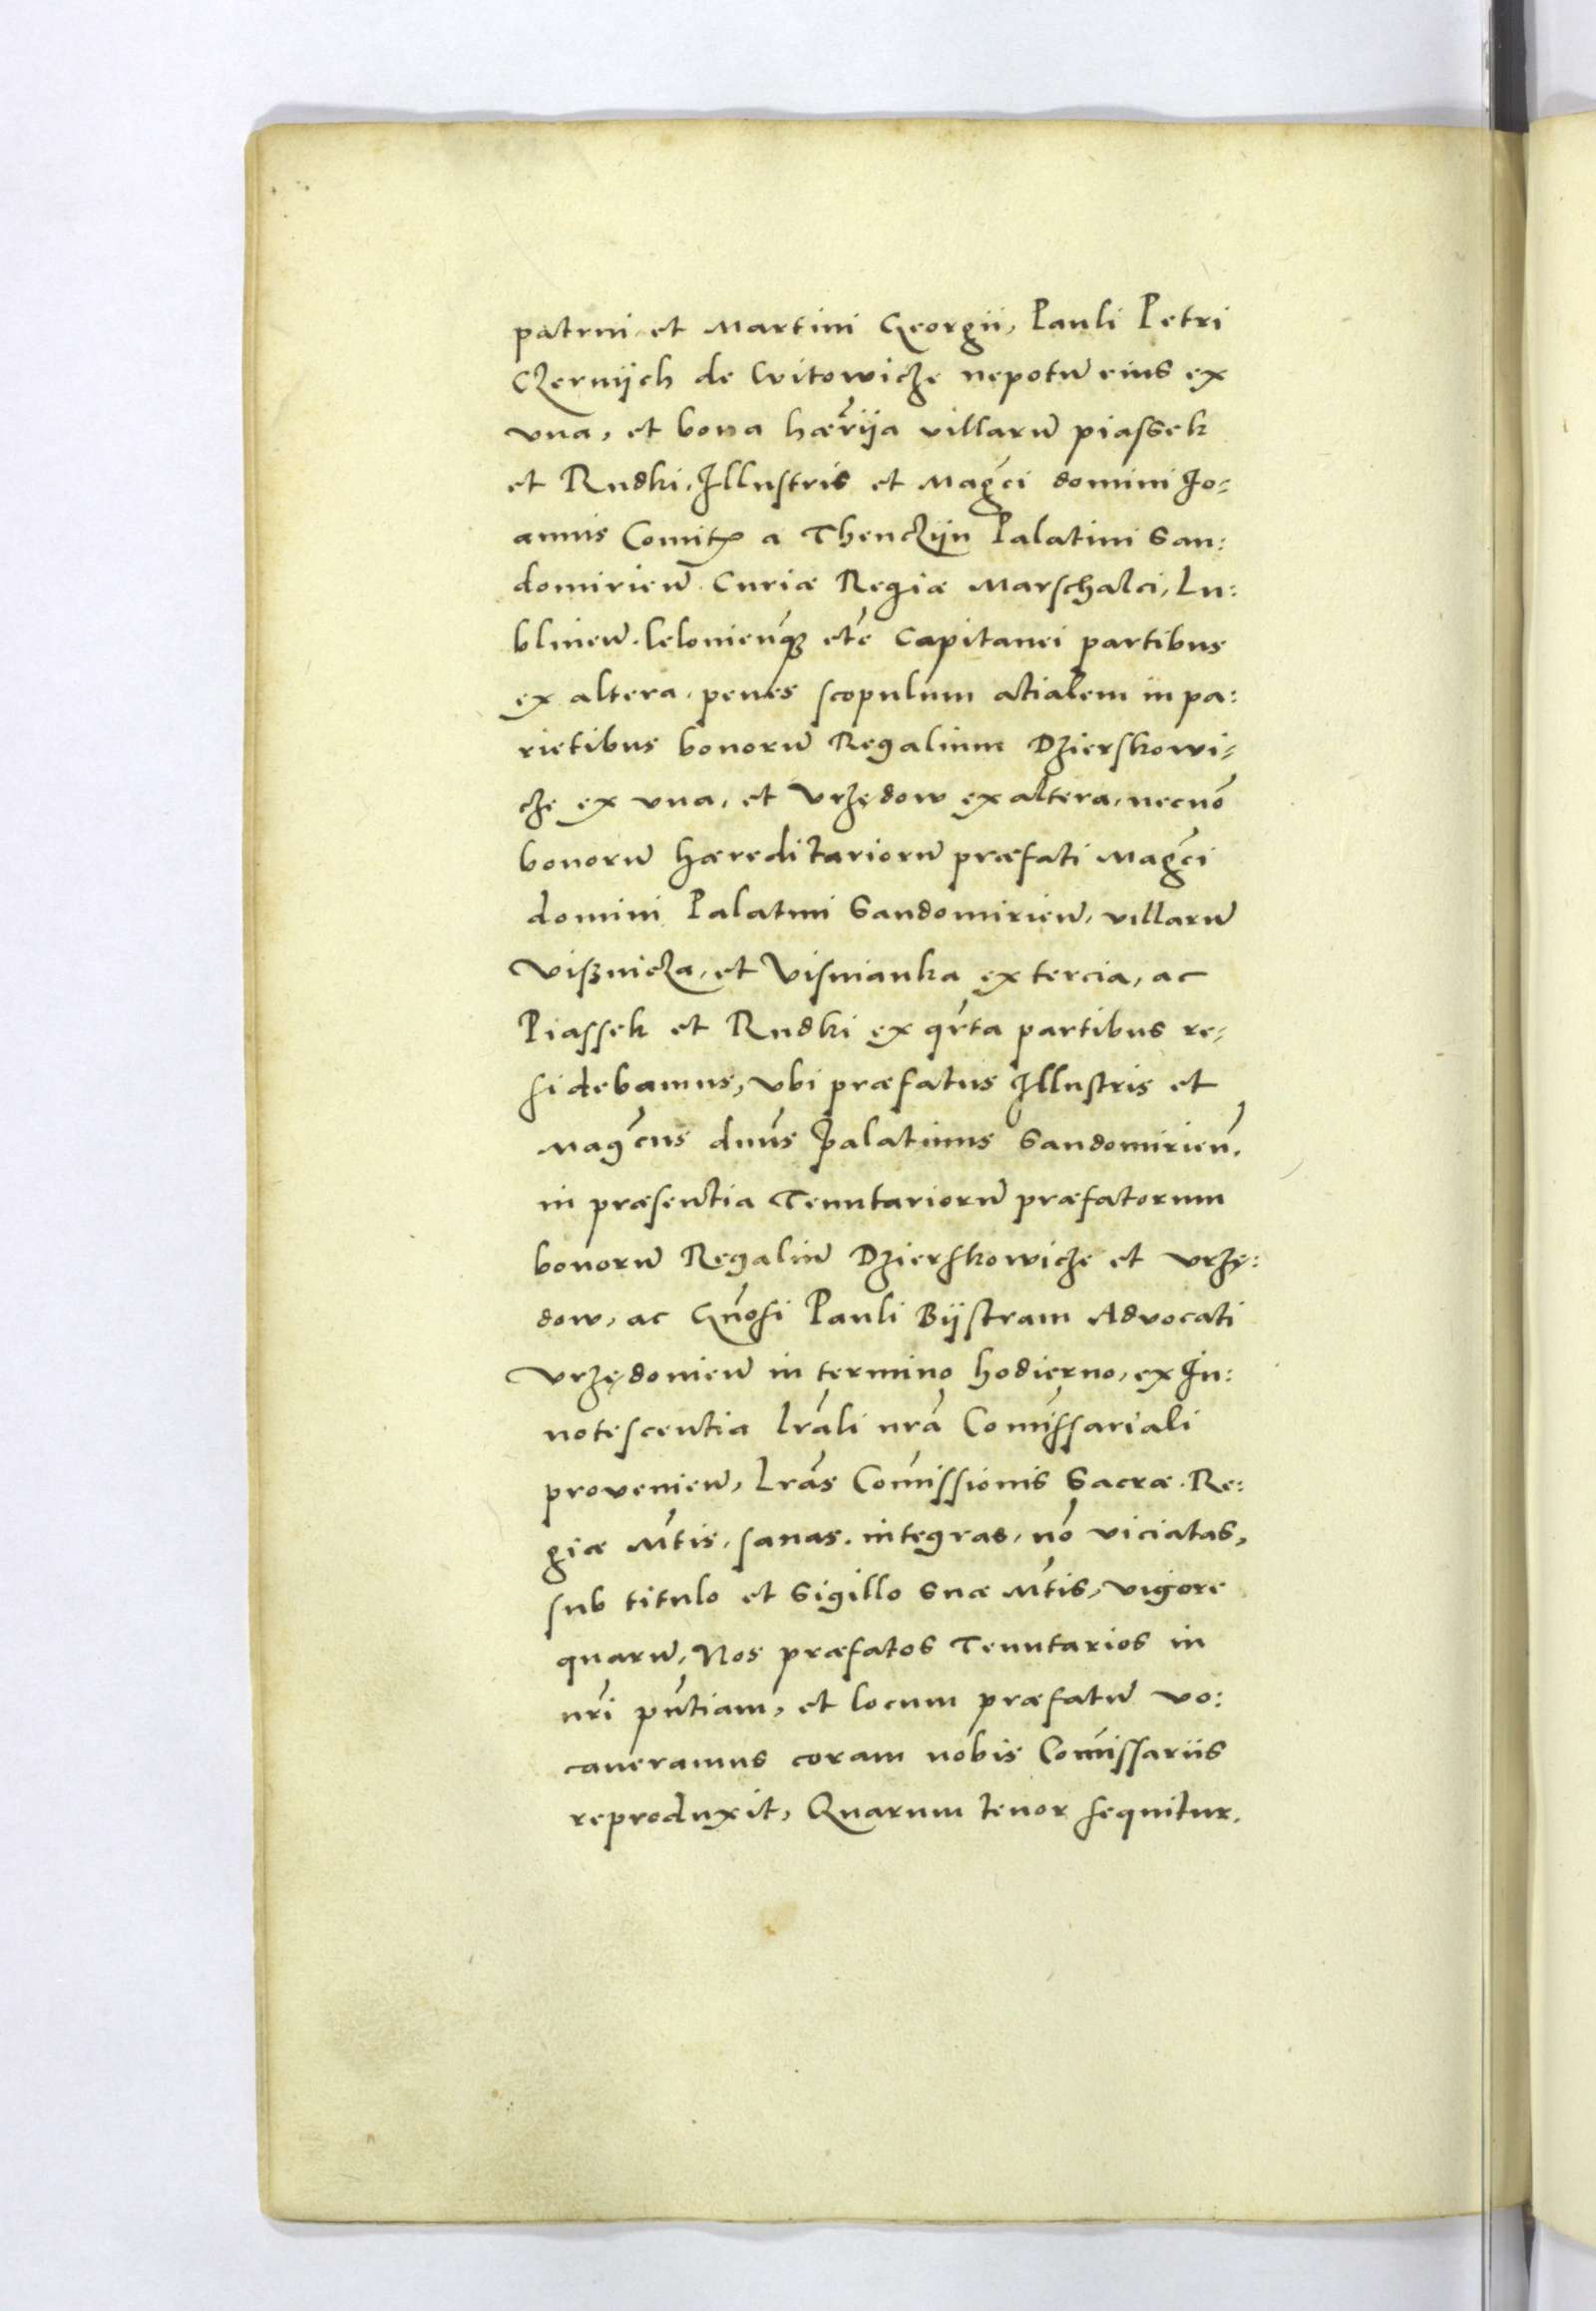 patrui et Martini Georgii, Pauli Petri
Czernijch de Witowicze nepotū eius ex
vna, et bona hærija villarū piassek
et Rudki, Illustris et Magci domini Jo=
annis Comitis a Thenczijn Palatini San:
domirieñ Curiæ Regiæ Marschalci, Lu:
blineñ. lelonieñqȝ etc̄ Capitanei partibus
ex altera, penes scopulum actialem in pa:
rietibus bonorū Regalium Dzierskowi=
cze ex vna, et Vrzędow ex altera, necnō
bonorū hæreditariorū præfati Magci
domini Palatini Sandomirieñ, villarū
Visznicza, et Visnianka ex tercia, ac
Piassek et Rudki ex qrta partibus re=
sidebamus, vbi præfatus Illustris et
Magcus dnūs Palatinus Sandomirieñ.
in præsentia Tenutariorū præfatorum
bonorū Regaliū Dzierskowicze et vrzę:
dow, ac Gnōsi Pauli Bijstram Advocati
Vrzędowieñ in termino hodierno, ex In:
notescentia lrāli nrā Comissariali
provenieñ, lrās Comissionis Sacræ Re:
giæ Mtis, sanas, integras, nō viciatas,
sub titulo et Sigillo Suæ Mtis, vigore
quarū, Nos præfatos Tenutarios in
nrī pñtiam, et locum præfatū vo:
caueramus coram nobis Comissariis
reproduxit, Quarum tenor sequitur.